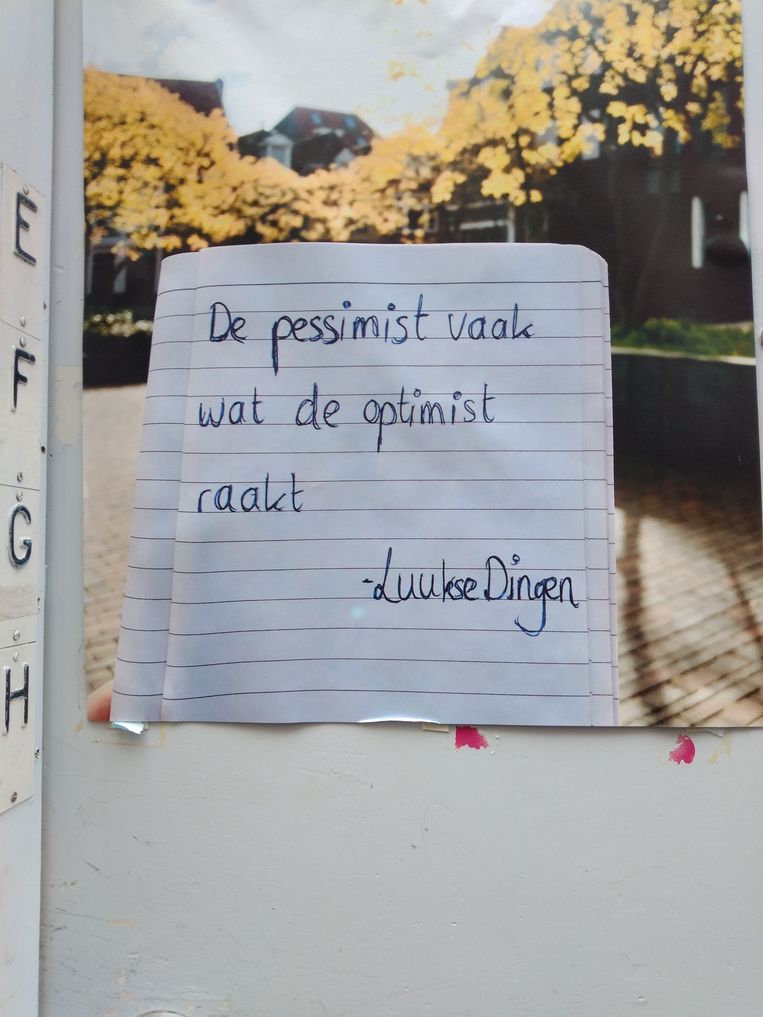 E
F
G
H
De pessimist vaak
wat de optimist
raakt
-Luukse Dingen